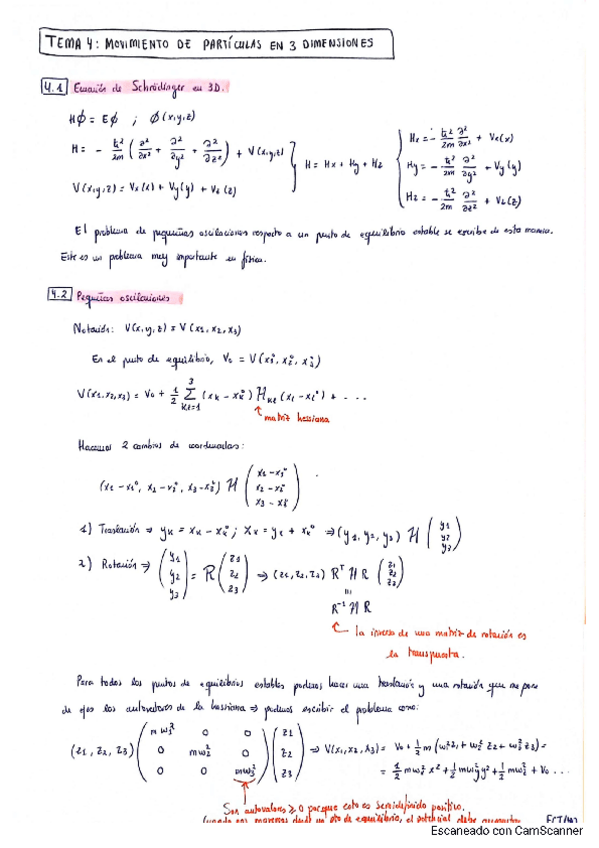 TEMA 4: MOVIMIENTO DE PARTÍCULAS EN 3 DIMENSIONES
4.1 Ecuación de Schrödinger en 3D.
Hϕ = Eϕ ; ϕ(x,y,z)
H = - ħ²/2m (∂²/∂x² + ∂²/∂y² + ∂²/∂z²) + V(x,y,z)
V(x,y,z) = Vx(x) + Vy(y) + Vz(z)
H = Hx + Hy + Hz
Hx = - ħ²/2m ∂²/∂x² + Vx(x)
Hy = - ħ²/2m ∂²/∂y² + Vy(y)
Hz = - ħ²/2m ∂²/∂z² + Vz(z)
El problema de pequeñas oscilaciones respecto a un punto de equilibrio estable se escribe de esta manera.
Este es un problema muy importante en física.
4.2 Pequeñas oscilaciones
Notación: V(x,y,z) = V(x1,x2,x3)
En el punto de equilibrio, V0 = V(x1°, x2°, x3°)
V(x1,x2,x3) = V0 + 1/2 Σ (xk - xk°) Hkl (xl - xl°) + ...
matriz hessiana
Hacemos 2 cambios de coordenadas:
(x1 - x1°, x2 - x2°, x3 - x3°) H (x1 - x1° x2 - x2° x3 - x3°)
1) Traslación ⇒ yk = xk - xk° ; xk = yk + xk° ⇒ (y1, y2, y3) H (y1 y2 y3)
2) Rotación ⇒ (y1 y2 y3) = R (z1 z2 z3) ⇒ (z1, z2, z3) Rᵀ H R (z1 z2 z3)
R⁻¹ H R
la inversa de una matriz de rotación es
la transpuesta.
Para todos los puntos de equilibrios estables podemos hacer una traslación y una rotación que me
de ejes los autovectores de la hessiana ⇒ podemos escribir el problema como:
(z1, z2, z3) (0 0 0 mω2² 0 0 0 mω3²) (z1 z2 z3) ⇒ V(x1,x2,x3) = V0 + 1/2 m
Son autovalores ≥ 0 porque esto es semidefinido positivo.
de equilibrio, el potencial debe aumentar
Escaneado con CamScanner